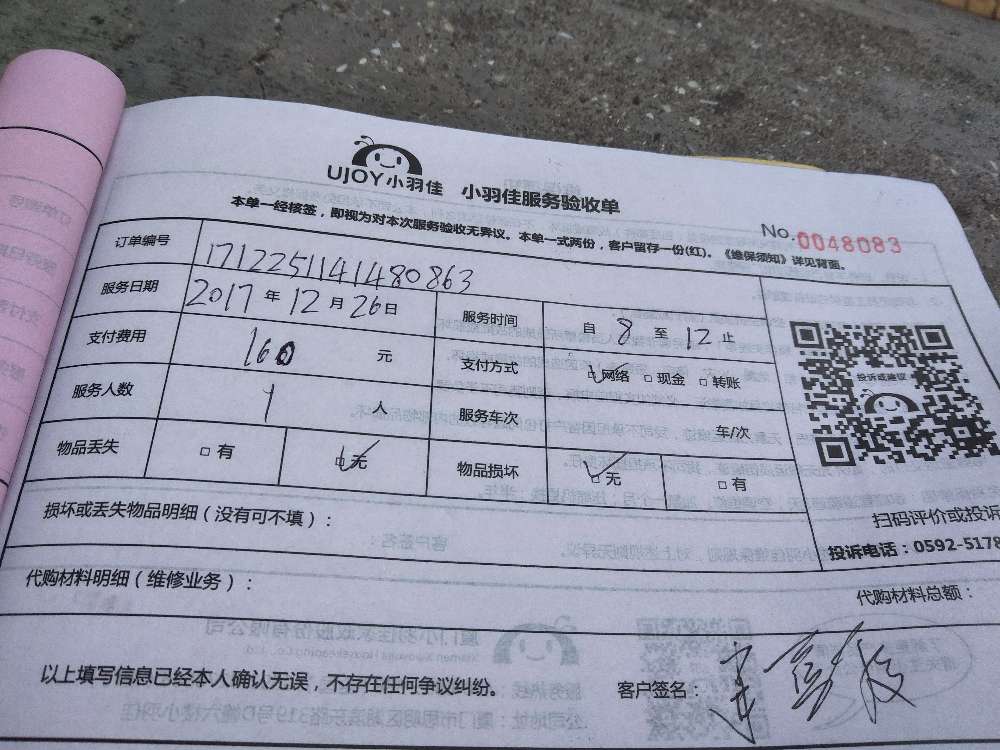 UJOY小羽佳 小羽佳服务验收单
本单一经核签，即视为对本次服务验收无异议。本单一式两份，客户留存一份(红)。《维保须知》详见背面。
No.0048083
订单编号 1712251141480863
服务日期 2017年12月26日 服务时间 自8至12止
支付费用 160元 支付方式 □网络 □现金 □转账
服务人数 1人 服务车次 车/次
物品丢失 □有 □无 物品损坏 □无 □有
投诉或建议
扫码评价或投诉
投诉电话：0592-5178
损坏或丢失物品明细（没有可不填）：
代购材料明细（维修业务）：
代购材料总额：
以上填写信息已经本人确认无误，不存在任何争议纠纷。 客户签名：